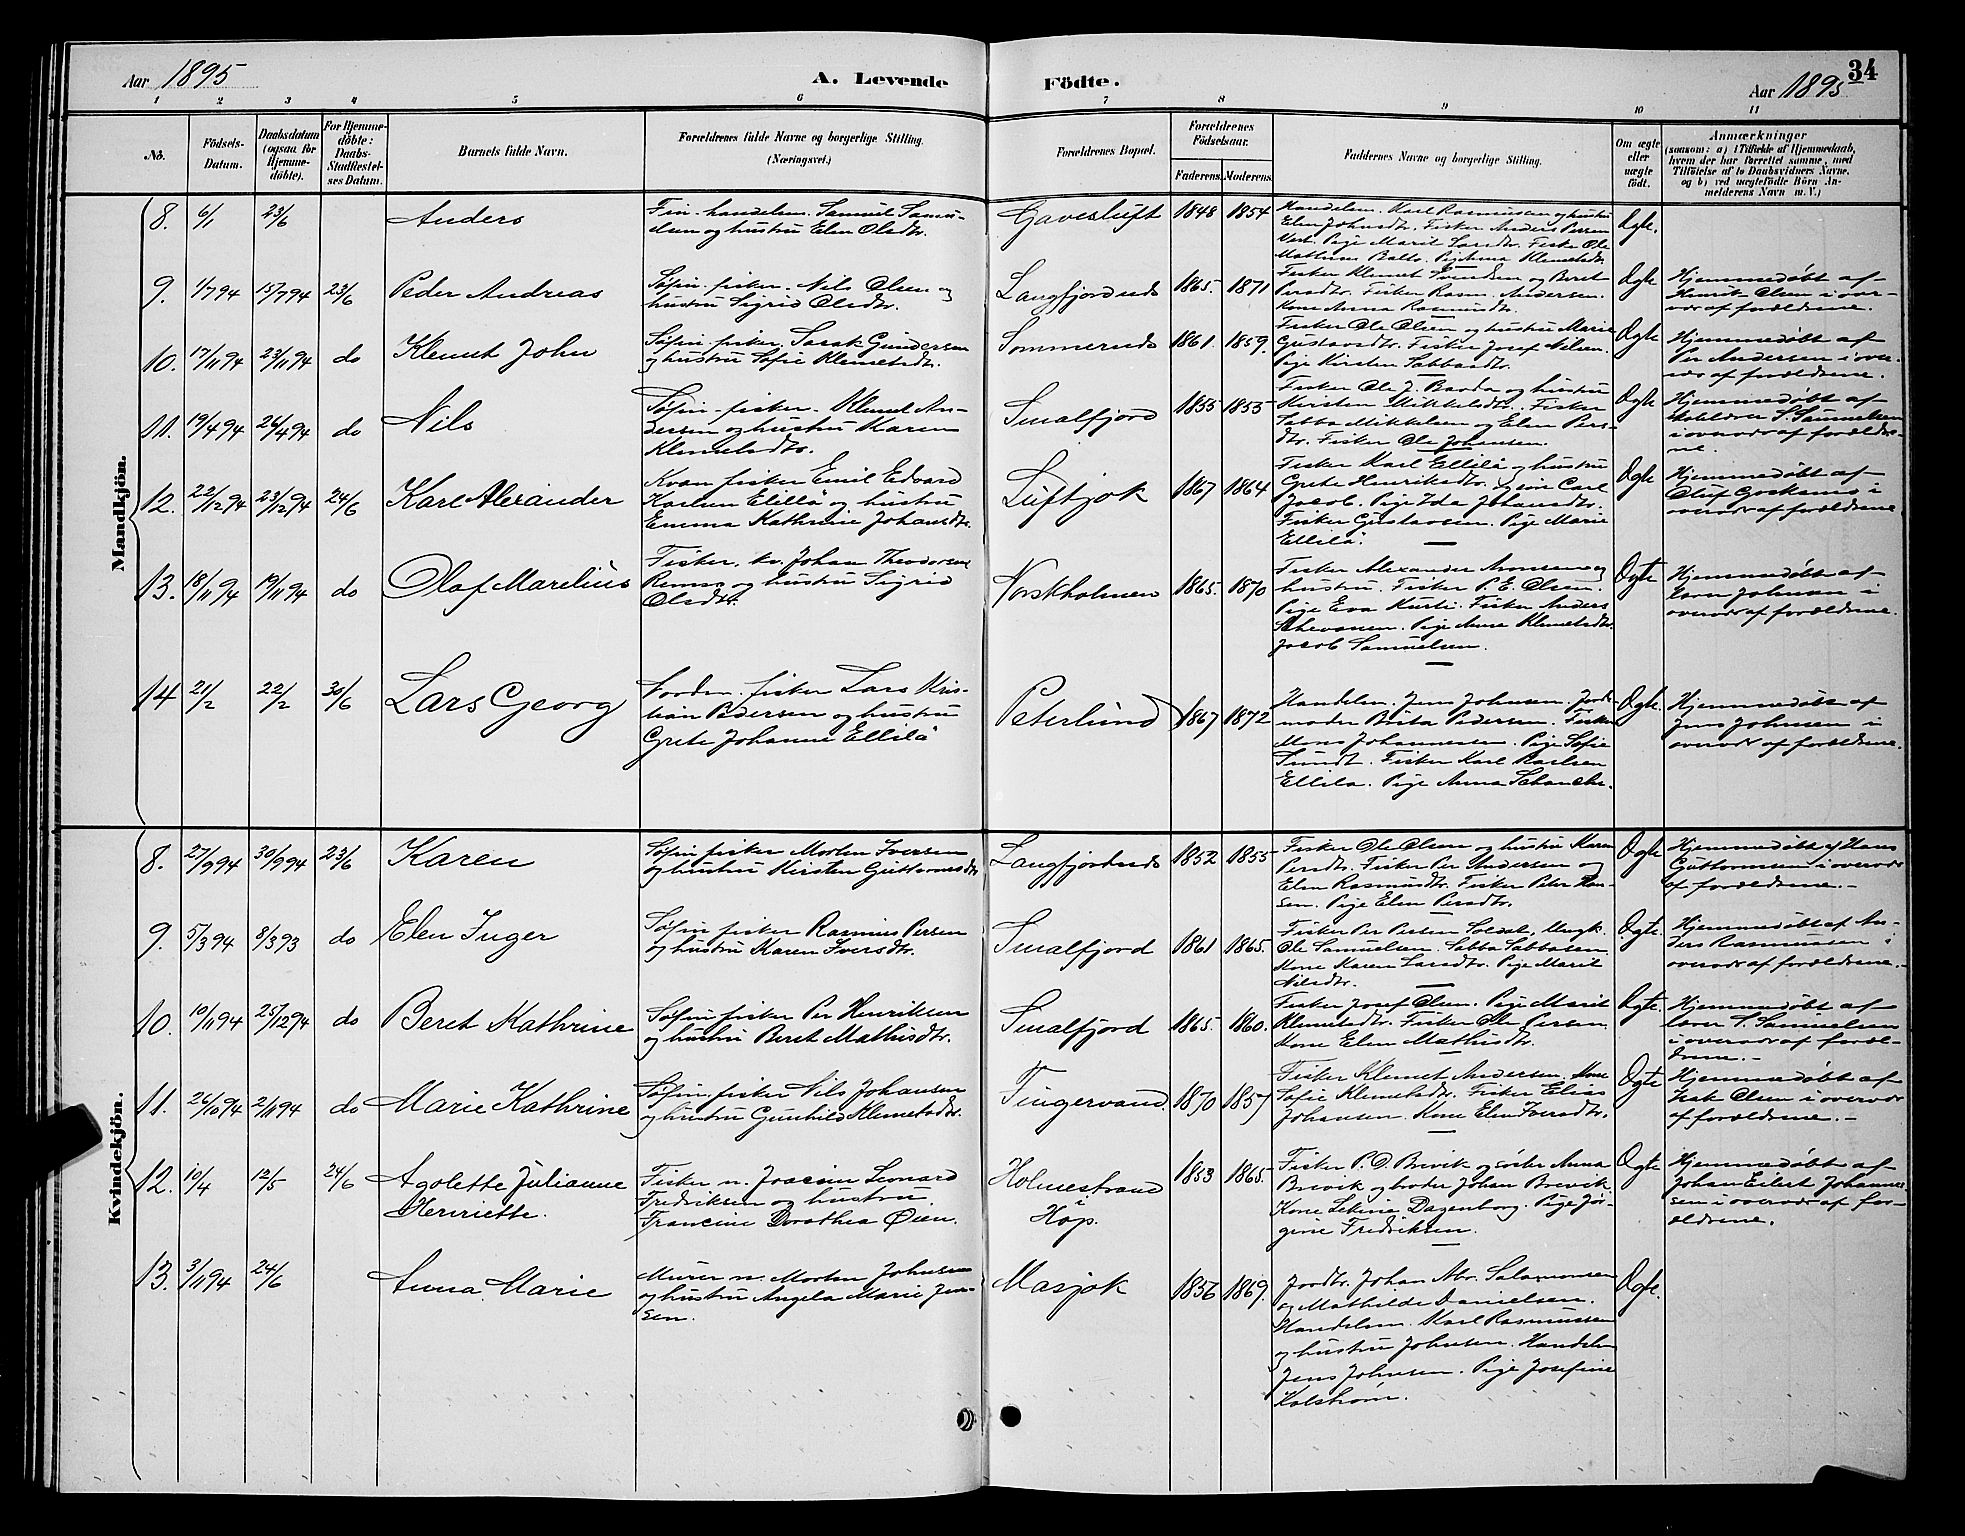 Aar 1895
A. Levende
Födte.
Aar 1895
34
1 2 3 4 5 6 7 8 9 10 11
No.
Födsels-
Datum.
Daabsdatum
(ogsaa for
Hjemme-
döbte).
For Hjemme-
döbte:
Daabs-
Stadfæstel-
ses Datum.
Barnets fulde Navn.
Forældrenes fulde Navne og borgerlige Stilling.
(Næringsvei.)
Forældrenes Bopæl.
Forældrenes
Födselsaar.
Faderens. Moderens.
Faddernes Navne og borgerlige Stilling.
Om ægte
eller
uægte
födt.
Anmærkninger
(saasom: a) i Tilfælde af Hjemmedaab,
hvem der har forrettet samme, med
Tilföielse af to Daabsvidners Navne,
og b) ved uægtefödte Börn An-
melderens Navn m. V.)
Mandkjön.
8. 6/1 23/6 Anders
Fin. handelsm. Samuel Samu-
elsen og hustru Elen Olsdtr.
Gavesluft 1848 1854
Handelsm. Karl Rasmussen og hustru
Elen Johnsdtr. Fisker Anders Persen
Vest. Pige Marit Larsdtr. Fisker Ole
Mathisen Balto. Pige Anna Klemetsdtr.
Ægte.
9. 1/7 94 15/7 94 23/6 Peder Andreas
Søfin. fisker. Nils Olsen og
hustru Sigrid Olsdtr.
Langfjordnæs 1865. 1871
Fisker Klemet Svendsen og Beret
Persdtr. Fisker Rasm. Andersen.
Kone Anna Rasmusdtr.
Ægte
Hjemmedøbt af
Henrik Olsen i over-
vær af forældrene.
10. 17/11 94 23/11 94 do Klemet John
Søfin. fisker. Isak Gundersen
og hustru Sofie Klemetsdtr.
Sommernæs 1861. 1859.
Fisker Ole Olsen og hustru Marie
Gustavsdtr. Fisker Josef Nilsen.
Pige Kirsten Sabbasdtr.
Ægte
Hjemmedøbt af
Per Andersen i over-
vær af forældrene.
11. 19/4 94 26/4 94 do Nils
Søfin. fisker. Klemet An-
dersen og hustru Karen
Klemetsdtr.
Smalfjord 1855 1855
Fisker Ole J. Varda og hustru
Kirsten Mikkelsdtr. Fisker
Sabba Mikkelsen og Elen Pers-
dtr. Fisker Ole Johansen.
Ægte
Hjemmedøbt af
S. Samuelsen
i overvær af forældre-
ne.
12. 22/12 94 23/12 94 24/6 Karl Alexander
Kvæn fisker Emil Edvard
Karlsen Ellilä og hustru
Emma Kathrine Johansdtr.
Luftjok 1867 1864
Fisker Karl Ellilä og hustru
Grete Henriksdtr. og søn Carl
Jacob. Pige Ida Johansdtr.
Fisker Gustavsen. Pige Marie
Ellilä.
Ægte
Hjemmedøbt af
Oluf Goskams i
overvær af forældrene
13. 18/11 94 19/11 94 do Olaf Marelius
Fisker. kv. Johan Theodorsen
Remes og hustru Sigrid
Olsdtr.
Norskholmen 1865. 1870
Fisker Alexander Aronsen og
hustru. Fisker P. E. Olsen.
Pige Eva Kurti. Fisker Anders
Schevasen. Pige Anne Klemetsdtr.
Jacob Samuelsen.
Ægte
Hjemmedøbt af
Johnsen i
overvær af forældrene.
14 21/2 22/2 30/6 Lars Georg
Nordm. fisker Lars Kris-
tian Pedersen og hustru
Grete Johanne Ellilä
Peterlund 1867 1872
Handelsm. Jens Johnsen. Jord-
moder Brita Pedersen. Fisker
Mons Johannessen. Pige Sofie
Sundt. Fisker Karl Karlsen
Ellila. Pige Anna Schanche.
Ægte.
Hjemmedøbt af
Jens Johnsen i
overvær af forældrene.
Kvindekjön.
8. 27/9 94 30/9 94 23/6 Karen
Søfin fisker Morten Iversen
og hustru Kirsten Guttormsdtr
Langfjordnæs 1852 1855
Fisker Ole Olsen og hustru Karen
Persdtr. Fisker Per Andersen og
Elen Rasmusdtr. Fisker Peter Han-
sen. Pige Elen Persdtr.
Ægte
Hjemmedøbt af Hans
Guttormsen i overvær
af forældrene.
9. 5/3 94 8/3 93 do Elen Inger
Søfin fisker Rasmus Persen
og hustru Karen Iversdtr.
Smalfjord 1861 1865.
Fisker Per Persen Soldat, Ungk.
Ole Samuelsen. Sabba Sabbasen
Kone Karen Larsdtr. Pige Marit
Nilsdtr.
Ægte.
Hjemmedøbt af An-
ders Rasmussen i
overvær af forældrene.
10. 10/11 94 25/12 94 do Beret Kathrine
Søfin fisker Per Henriksen
og hustru Beret Mathisdtr.
Smalfjord 1865. 1860.
Fisker Josef Olsen. Pige Marit
Klemetsdtr. Fisker Ole Persen
Kone Elen Mathisdtr.
Ægte.
Hjemmedøbt af
lærer S. Samuelsen
i overvær af foræl-
drene.
11. 26/10 94 2/11 94 do Marie Kathrine
Søfin. fisker Nils Johansen
og hustru Gunhild Klemetsdtr.
Tingervand. 1870 1857
Fisker Klemet Andersen. Kone
Sofie Klemetsdtr. Fisker Elias
Johansen. Kone Elen Iversdtr.
Ægte
Hjemmedøbt af
Isak Olsen i overvær
af forældrene.
12. 10/4 12/5 24/6 Agolette Julianne
Henriette.
Fisker n. Joacim Leonard
Fredriksen og hustru
Francine Dorothea Øien.
Holmestrand
i
Hop. 1853 1865.
Fisker P. D. Brevik og søster Anna
Brevik og broder Johan Brevik
Kone Sekine Dagenborg. Pige Jør-
gine Fredriksen.
Ægte
Hjemmedøbt af
Johan Eilert Johannes-
sen i overvær af for-
ældrene.
13. 3/11 94 24/6 Anna Marie
Murer n. Morten Johnsen
og hustru Angela Marie Jen-
sen.
Masjok 1856 1869.
Jordbr. Johan Abr. Salamonsen
og Mathilde Danielsen.
Handelsm. Karl Rasmussen
og hustru Johnsen. Handelsm
Jens Johnsen. Pige Josefine
Kolstrøm.
Ægte.